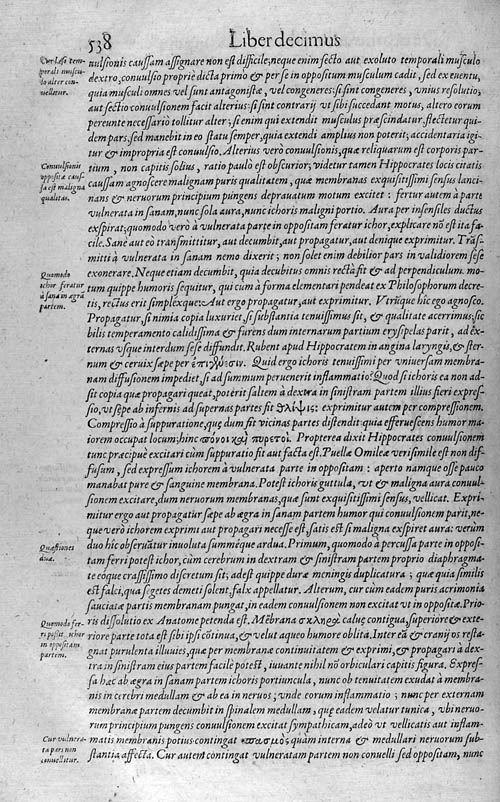 538
Liber decimus
Cur læso temporali musculo alter conuellatur.
uulsionis caussam assignare non est difficile, neque enim secto aut exoluto temporali musculo
dextro, conuulsio propriè dicta primo & per se in oppositum musculum cadit, sed ex euentu,
quia musculi omnes vel sunt antagonistæ, vel congeneres: si sint congeneres, vnius resolutio,
aut sectio conuulsionem facit alterius: si sint contrarij vt sibi succedant motus, altero eorum
pereunte necessario tollitur alter; si enim qui extendit musculus præscindatur, flectetur qui-
dem pars, sed manebit in eo statu semper, quia extendi amplius non poterit; accidentaria igi-
tur & impropria est conuulsio. Alterius verò conuulsionis, quæ reliquarum est corporis par-
Conuulsionis oppositæ caussa est maligna qualitas.
tium, non capitis solius, ratio paulo est obscurior; videtur tamen Hippocrates locis citatis
caussam agnoscere malignam puris qualitatem, quæ membranas exquisitissimi sensus lanci-
nans & neruorum principium pungens deprauatum motum excitet: fertur autem à parte
vulnerata in sanam, nunc sola aura, nunc ichoris maligni portio. Aura per insensiles ductus
exspirat; quomodo verò à vulnerata parte in oppositam feratur ichor, explicare nō est ita fa-
cile. Sanè aut eò transmittitur, aut decumbit, aut propagatur, aut denique exprimitur. Trās-
mitti à vulnerata in sanam nemo dixerit; non solet enim debilior pars in validiorem sese
Quomodo ichor feratur à sana in ægrā partem.
exonerare. Neque etiam decumbit, quia decubitus omnis rectà fit & ad perpendiculum. mo-
tum quippe humoris sequitur, qui cum à forma elementari pendeat ex Philosophorum decre-
tis, rectus erit simplexque: Aut ergo propagatur, aut exprimitur. Vtrūque hic ego agnosco.
Propagatur, si nimia copia luxuriet, si substantia tenuissimus sit, & qualitate acerrimus; sic
bilis temperamento calidissima & furens dum internarum partium erysipelas parit, ad ex-
ternas vsque interdum sese diffundit. Rubent apud Hippocratem in angina laryngis, & ster-
num & ceruix sæpe per ἐπιγένεσιν. Quid ergo ichoris tenuissimi per vniuersam membra-
nam diffusionem impediet, si ad summum peruenerit inflammatio? Quod si ichoris ea non ad-
sit copia quæ propagari queat, poterit saltem à dextra in sinistram partem illius fieri expres-
sio, vt sæpe ab infernis ad supernas partes fit θλίψις: exprimitur autem per compressionem.
Compressio à suppuratione, quæ dum fit vicinas partes distendit quia efferuescens humor ma-
iorem occupat locum; hinc πόνοι καὶ πυρετοί. Propterea dixit Hippocrates conuulsionem
tunc præcipuè excitari cùm suppuratio fit aut facta est. Puellæ Omileæ verisimile est non dif-
fusum, sed expressum ichorem à vulnerata parte in oppositam: aperto namque osse pauco
manabat pure & sanguine membrana. Potest ichoris guttula, vt & maligna aura conuul-
sionem excitare, dum neruorum membranas, quæ sunt exquisitissimi sensus, vellicat. Expri-
mitur ergo aut propagatur sæpe ab ægra in sanam partem humor qui conuulsionem parit, ne-
que verò ichorem exprimi aut propagari necesse est, satis est si maligna exspiret aura: verùm
Quæstiones duæ.
duo hic obseruātur inuoluta summéque ardua. Primum, quomodo à percussa parte in opposi-
tam ferri potest ichor, cùm cerebrum in dextram & sinistram partem proprio diaphragma-
te eoque crassissimo discretum sit; adest quippe duræ meningis duplicatura; quæ quia similis
est falci, qua segetes demeti solent, falx appellatur. Alterum, cur cùm eadem puris acrimonia
sauciatæ partis membranam pungat, in eadem conuulsionem non excitat vt in opposita. Prio-
Quomodo ferri possit ichor in oppositam partem.
ris dissolutio ex Anatome petenda est. Mēbrana σκληρὰ caluæ contigua, superiore & exte-
riore parte tota est sibi ipsi cōtinua, & velut aqueo humore oblita. Inter eā & cranij os resta-
gnat purulenta illuuies, quæ per membranæ continuitatem & exprimi, & propagari à dex-
tra in sinistram eius partem facilè potest, iuuante nihil nō orbiculari capitis figura. Expres-
sa hæc ab ægra in sanam partem ichoris portiuncula, nunc ob tenuitatem exudat à membra-
nis in cerebri medullam & ab ea in neruos; vnde eorum inflammatio; nunc per externam
membranæ partem decumbit in spinalem medullam, quæ eadem velatur tunica, vbi neruo-
rum principium pungens conuulsionem excitat sympathicam, adeò vt vellicatis aut inflam-
Cur vulnerata pars non conuellitur.
matis membranis potius contingat σπασμὸς quàm interna & medullari neruorum sub-
stantia affecta. Cur autem contingat vulneratam partem non conuelli sed oppositam, nunc